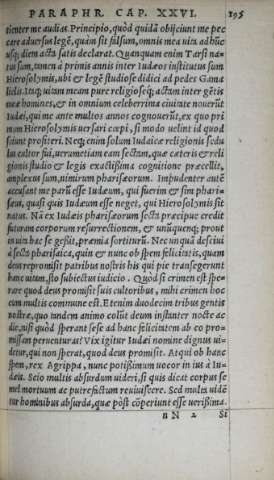 PARAPHR. CAP. XXVI. 195
tienter me audias. Principio, quòd quidã obijciunt me pec
care aduersus legẽ, quàm sit falsum, omnis mea uita adhuc
usq; diem acta satis declarat. Quanquam enim Tarsi na-
tus sum, tamen à primis annis inter Iudæos institutus sum
Hierosolymis, ubi & legẽ studiose didici ad pedes Gama
lielis. Itaq; uitam meam pure religioseq; actam inter gẽtis
meæ homines, & in omnium celeberrima ciuitate nouerũt
Iudæi, qui me ante multos annos cognouerũt, ex quo pri
mum Hierosolymis uersari cœpi, si modo uelint id quod
sciunt profiteri. Neq; enim solum Iudaicæ religionis sedu
lus cultor fui, uerumetiam eam sectam, quæ cæteris reli
gionis studio & legis exactissima cognitione præcellit,
amplexus sum, nimirum pharisæorum. Impudenter autẽ
accusant me parũ esse Iudæum, qui fuerim & sim phari-
sæus, quasi quis Iudæum esse neget, qui Hierosolymis sit
natus. Nã ex Iudæis pharisæorum secta præcipue credit
futuram corporum resurrectionem, & unũquenq; prout
in uita hac se gessit, præmia sortiturũ. Nec unquã desciui
à secta pharisaica, quin & nunc ob spem felicitatis, quam
deus repromisit patribus nostris his qui pie transegerunt
hanc uitam, sto subiectus iudicio. Quòd si crimen est spe-
rare quod deus promisit suis cultoribus, mihi crimen hoc
cum multis commune est. Etenim duodecim tribus gentis
nostræ, quo tandem animo colũt deum instanter nocte ac
die, nisi quòd sperant sese ad hanc felicitatem ab eo pro-
missam peruenturas? Vix igitur Iudæi nomine dignus ui-
detur, qui non sperat, quod deus promisit. Atqui ob hanc
spem, rex Agrippa, nunc potissimum uocor in ius à Iu-
dæis. Scio multis absurdum uideri, si quis dicat corpus se
mel mortuum ac putrefactum reuiuiscere. Sed multa uidẽ
tur hominibus absurda, quæ pòst cõperiunt esse uerissima.
BN 2 Si